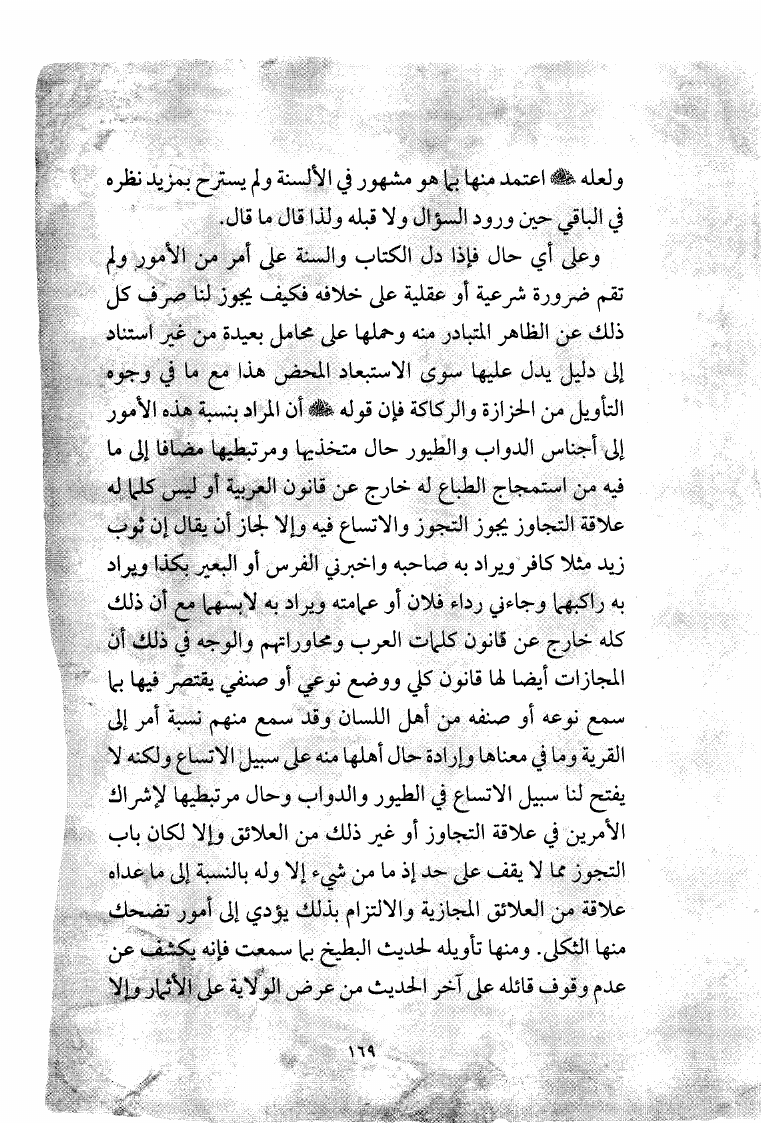 ولعله اعتمد منها بما هو مشهور في الألسنة ولم يسترح بمزيد نظره
في الباقي حين ورود السؤال ولا قبله ولذا قال ما قال.
وعلى أي حال فإذا دل الكتاب والسنة على أمر من الأمور ولم
تقم ضرورة شرعية أو عقلية على خلافه فكيف يجوز لنا صرف كل
ذلك عن الظاهر المتبادر منه وحملها على محامل بعيدة من غير استناد
إلى دليل يدل عليها سوى الاستبعاد المحض هذا مع ما في وجوه
التأويل من الحزازة والركاكة فإن قوله أن المراد بنسبة هذه الأمور
إلى أجناس الدواب والطيور حال متخذيها ومرتبطيها مضافا إلى ما
فيه من استمجاج الطباع له خارج عن قانون العربية أو ليس كلما له
علاقة التجاوز يجوز التجوز والاتساع فيه وإلا لجاز أن يقال إن ثوب
زيد مثلا كافر ويراد به صاحبه واخبرني الفرس أو البعير بكذا ويراد
به راكبهما وجاءني رداء فلان أو عمامته ويراد به لابسهما مع أن ذلك
كله خارج عن قانون كلمات العرب ومحاوراتهم والوجه في ذلك أن
المجازات أيضا لها قانون كلي ووضع نوعي أو صنفي يقتصر فيها بما
سمع نوعه أو صنفه من أهل اللسان وقد سمع منهم نسبة أمر إلى
القرية وما في معناها وإرادة حال أهلها منه على سبيل الاتساع ولكنه لا
يفتح لنا سبيل الاتساع في الطيور والدواب وحال مرتبطيها لإشراك
الأمرين في علاقة التجاوز أو غير ذلك من العلائق وإلا لكان باب
التجوز مما لا يقف على حد إذ ما من شيء إلا وله بالنسبة إلى ما عداه
علاقة من العلائق المجازية والالتزام بذلك يؤدي إلى أمور تضحك
منها الثكلى. ومنها تأويله لحديث البطيخ بما سمعت فإنه يكشف عن
عدم وقوف قائله على آخر الحديث من عرض الولاية على الأثمار وإلا
١٦٩